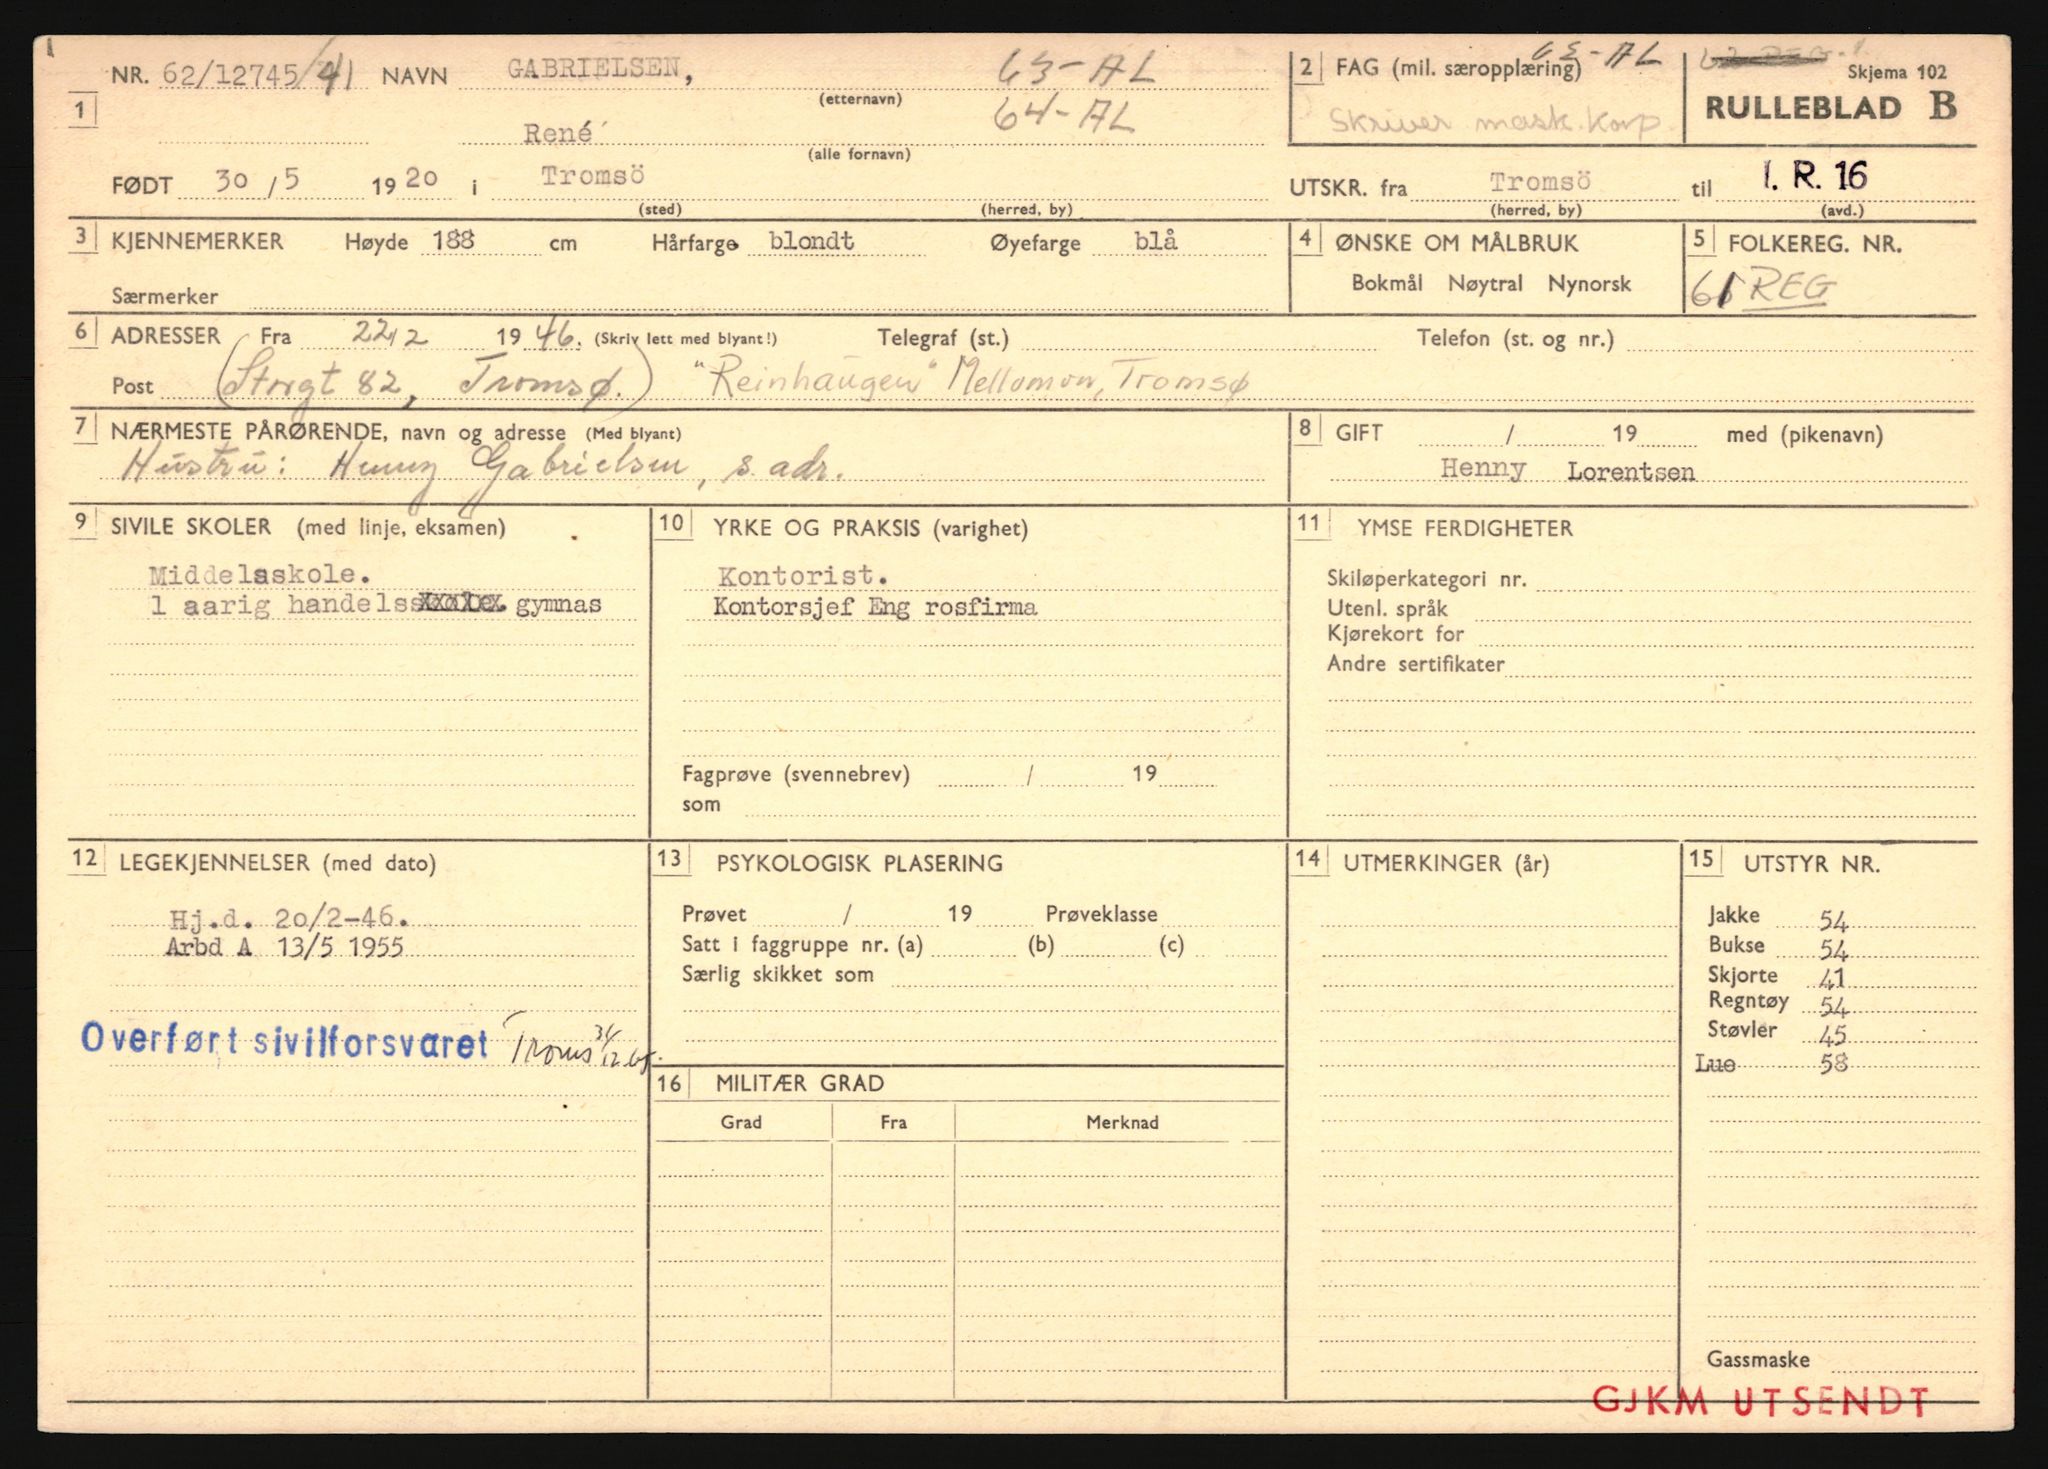 NR. 62/12745/41 NAVN GABRIELSEN, 63-AL
(etternavn) 64-AL
1
René
(alle fornavn)
FØDT 30/5 1920 i Tromsö
(sted) (herred, by)
2 FAG (mil. særopplæring) 63-AL
Skriver mask.komp.
Skjema 102
RULLEBLAD B
UTSKR. fra Tromsö til I. R. 16
(herred, by) (avd.)
3 KJENNEMERKER Høyde 188 cm Hårfarge blondt Øyefarge blå
Særmerker
4 ØNSKE OM MÅLBRUK
Bokmål Nøytral Nynorsk
5 FOLKEREG. NR.
61 REG
6 ADRESSER Fra 22/2 1946. (Skriv lett med blyant!) Telegraf (st.) Telefon (st. og nr.)
Post (Storgt 82, Tromsø.) "Reinhaugen" Mellomvn, Tromsø
7 NÆRMESTE PÅRØRENDE, navn og adresse (Med blyant)
Hustru: Henny Gabrielsen, s. adr.
8 GIFT / 19 med (pikenavn)
Henny Lorentsen
9 SIVILE SKOLER (med linje, eksamen)
Middelaskole.
1 aarig handelss gymnas
10 YRKE OG PRAKSIS (varighet)
Kontorist.
Kontorsjef Eng rosfirma
Fagprøve (svennebrev) / 19
som
11 YMSE FERDIGHETER
Skiløperkategori nr.
Utenl. språk
Kjørekort for
Andre sertifikater
12 LEGEKJENNELSER (med dato)
Hj.d. 20/2-46.
Arbd A 13/5 1955
Overført sivilforsvaret Troms
13 PSYKOLOGISK PLASERING
Prøvet / 19 Prøveklasse
Satt i faggruppe nr. (a) (b) (c)
Særlig skikket som
16 MILITÆR GRAD
Grad Fra Merknad
14 UTMERKINGER (år)
15 UTSTYR NR.
Jakke 54
Bukse 54
Skjorte 41
Regntøy 54
Støvler 45
Lue 58
Gassmaske
GJKM UTSENDT